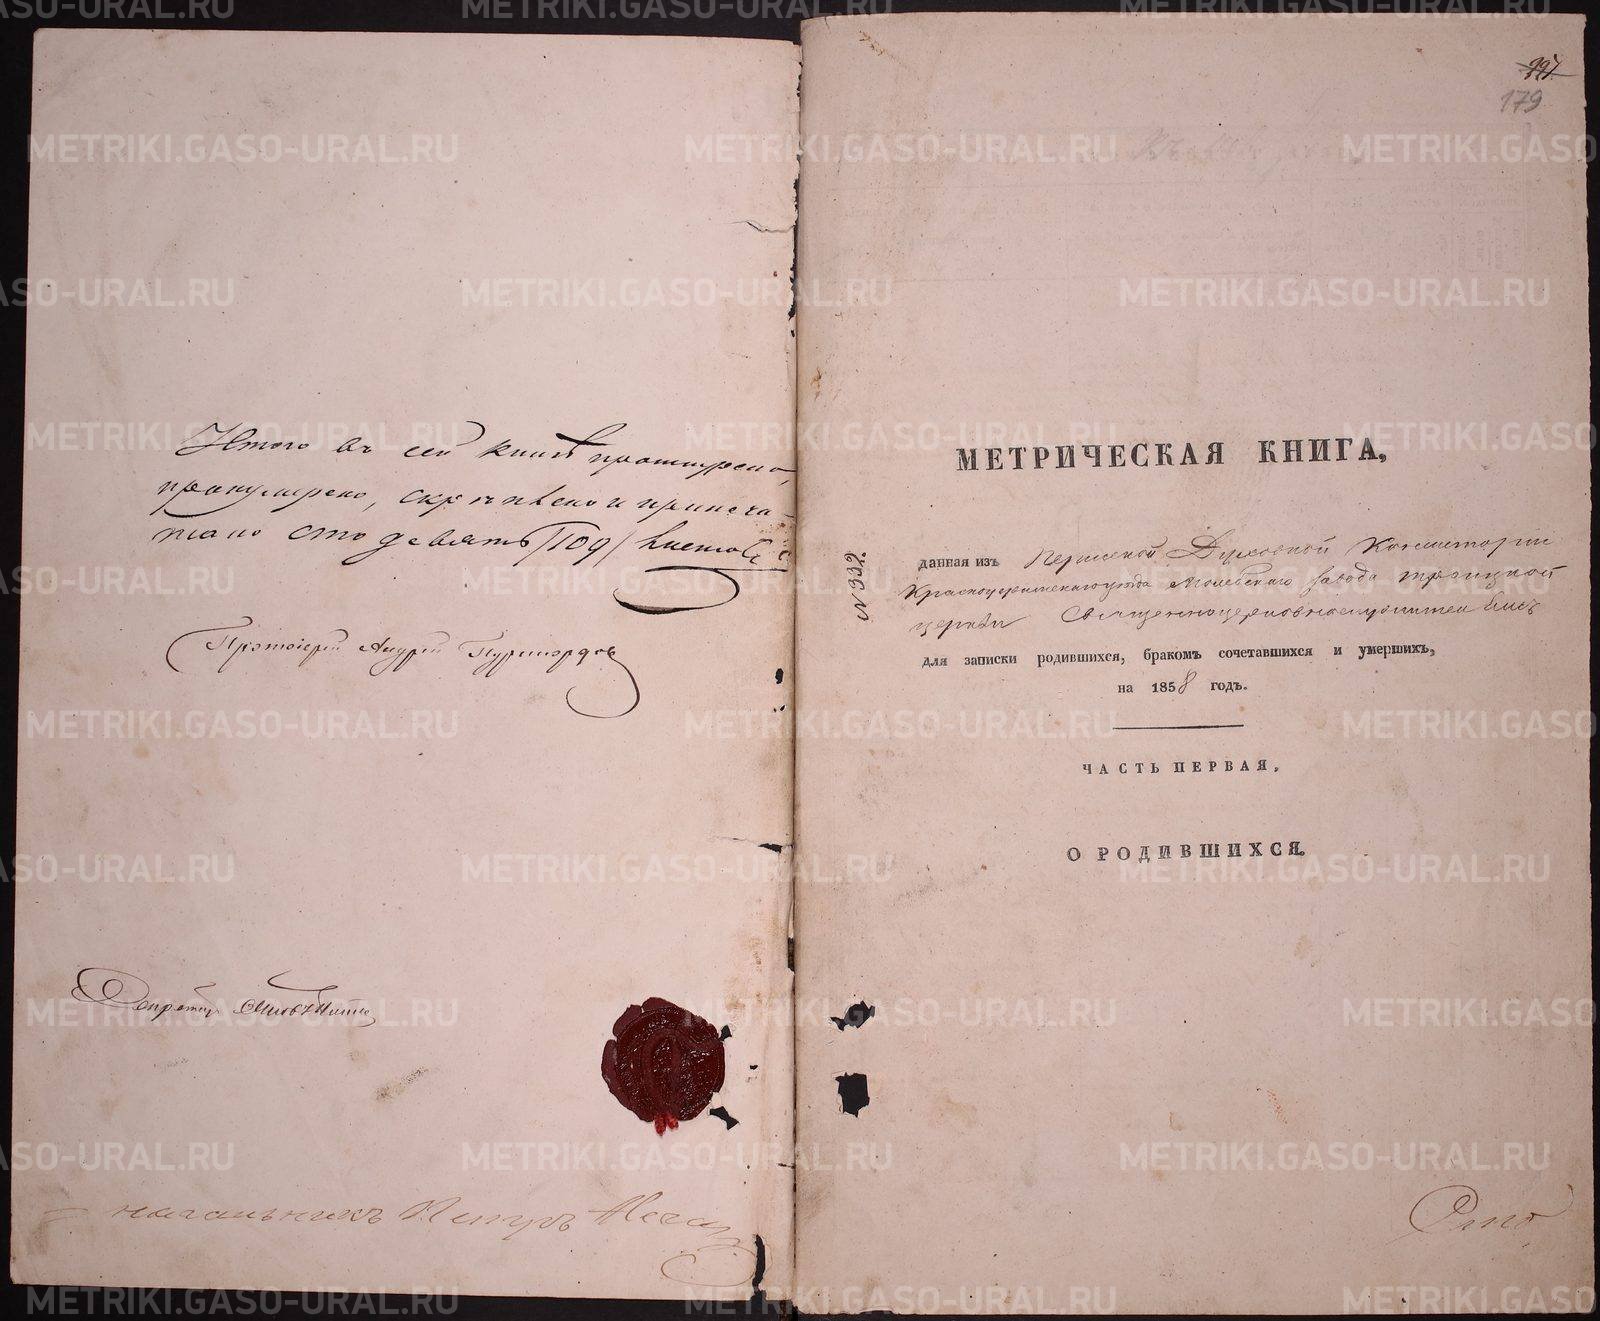 Итого въ сей книгѣ прошнурено,
пронумерено, скрѣплено и припеча-
тано сто девять /109/ листовъ
Протоіерей Андрей
Секретарь
начальникъ Петръ
997
179
МЕТРИЧЕСКАЯ КНИГА,
N 332.
данная изъ Пермской Духовной Консисторіи
Красноуфимскаго уѣзда Молебскаго завода Троицкой
церкви Священноцерковнослужителямъ
для записки родившихся, бракомъ сочетавшихся и умершихъ,
на 1858 годъ.
ЧАСТЬ ПЕРВАЯ,
О РОДИВШИХСЯ.
METRIKI.GASO-URAL.RU